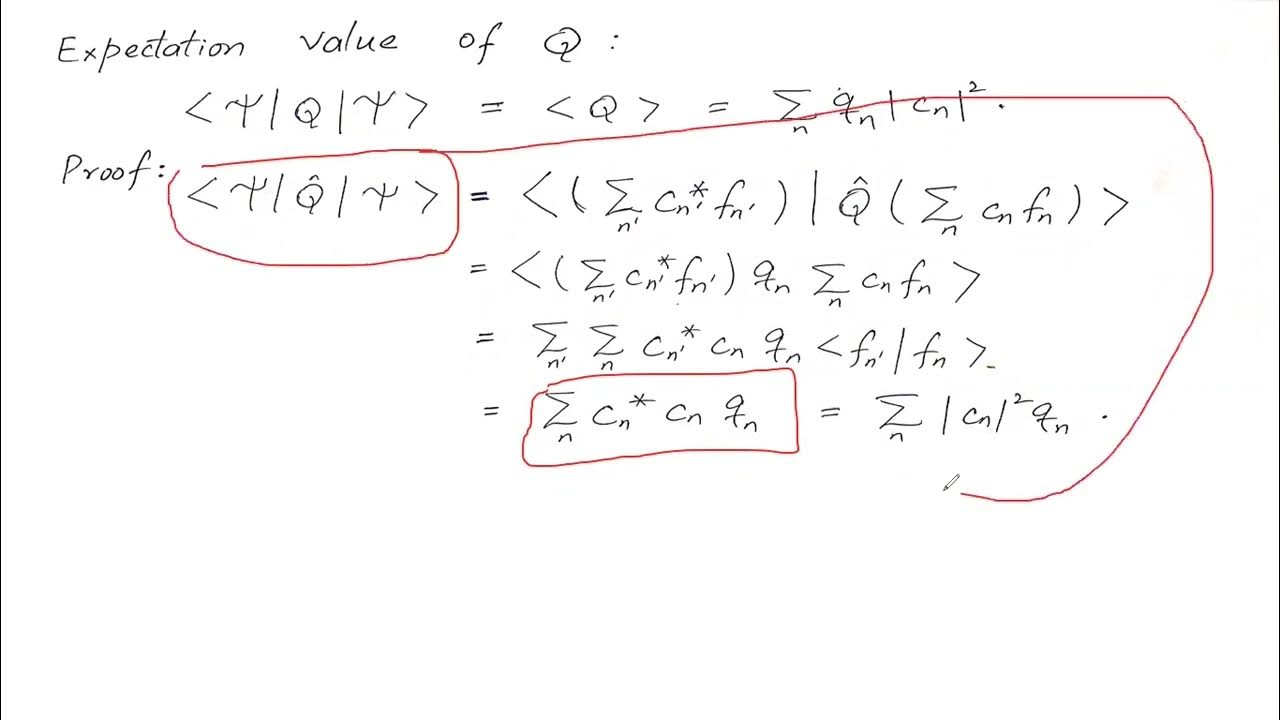 Expectation value of Q :
< Ψ | Q | Ψ > = < Q > = Σ_n q_n |c_n|² .
Proof: < Ψ | Q̂ | Ψ > = < ( Σ_n' c_n'* f_n' ) | Q̂ ( Σ_n c_n f_n ) >
= < ( Σ_n' c_n'* f_n' ) q_n Σ_n c_n f_n >
= Σ_n' Σ_n c_n'* c_n q_n < f_n' | f_n >
= Σ_n c_n* c_n q_n = Σ_n |c_n|² q_n .